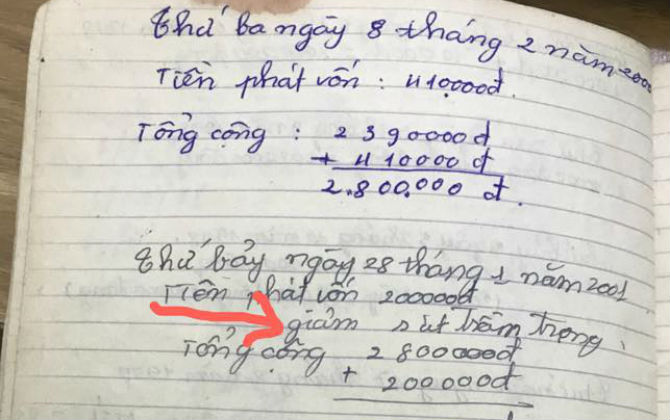 Thứ ba ngày 8 tháng 2 năm 2000
Tiền phát vốn : 410.000đ.
Tổng cộng : 2390000đ
+ 410000đ
2.800.000 đ.
Thứ bảy ngày 28 tháng 1 năm 2001
Tiền phát vốn 200000đ
giảm sút trầm trọng.
Tổng cộng 2800000đ
+ 200000đ